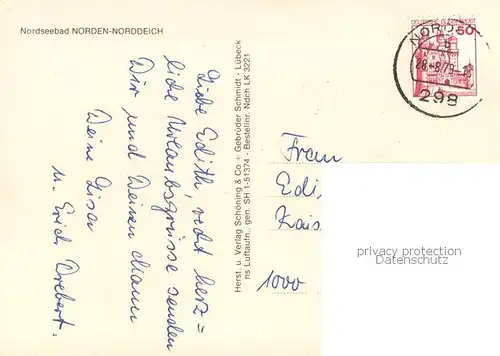 Nordseebad NORDEN-NORDDEICH
Liebe Edith, recht herz=
liche Urlaubsgrüsse senden
Dir und Deinen Mann
Deine Lisa
u. Erich Drebert.
Herst. u. Verlag Schöning & Co + Gebrüder Schmidt - Lübeck
ns Luftaufn., gen. SH 1-51374 - Bestellnr. Ndch LK 3221
NORDEN
50
b
-8.79-
298
Frau
Edi
Kais
1000
privacy protection
Datenschutz